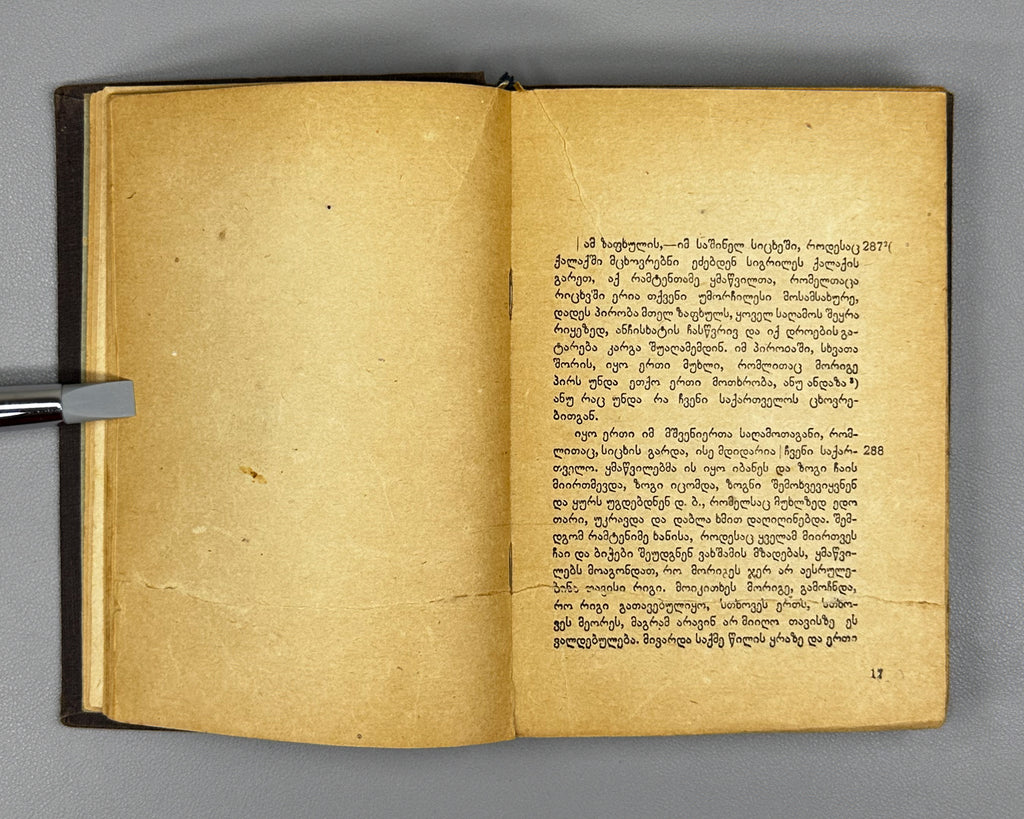 | ამ ზაფხულის,—იმ საშინელ სიცხეში, როდესაც 287²(
ქალაქში მცხოვრებნი ეძებდენ სიგრილეს ქალაქის
გარეთ, აქ რამტენთამე ყმაწვილთა, რომელთაცა
რიცხვში ერია თქვენი უმორჩილესი მოსამსახურე,
დადეს პირობა მთელ ზაფხულს, ყოველ საღამოს შეყრა
რიყეზედ, ანჩისხატის ჩასწვრივ და იქ დროების გა-
ტარება კარგა შუაღამემდინ. იმ პირობაში, სხვათა
შორის, იყო ერთი მუხლი, რომლითაც მორიგე
პირს უნდა ეთქო ერთი მოთხრობა, ანუ ანდაზა ⁸)
ანუ რაც უნდა რა ჩვენი საქართველოს ცხოვრე-
ბითგან.
იყო ერთი იმ მშვენიერთა საღამოთაგანი, რომ-
ლითაც, სიცხის გარდა, ისე მდიდარია | ჩვენი საქარ- 288
თველო. ყმაწვილებმა ის იყო იბანეს და ზოგი ჩაის
მიირთმევდა, ზოგი იცომდა, ზოგნი შემოხვევიყვნენ
და ყურს უგდებდნენ დ. ბ., რომელსაც მუხლზედ ედო
თარი, უკრავდა და დაბლა ხმით დაღიღინებდა. შემ-
დგომ რამტენიმე ხანისა, როდესაც ყველამ მიირთვეს
ჩაი და ბიჭები შეუდგნენ ვახშამის მზადებას, ყმაწვი-
ლებს მოაგონდათ, რო მორიგეს ჯერ არ აესრულე-
ბინა თავისი რიგი. მოიკითხეს მორიგე, გამოჩნდა,
რო რიგი გათავებულიყო, სთხოვეს ერთს, სთხო-
ვეს მეორეს, მაგრამ არავინ არ მიიღო თავისზე ეს
ვალდებულება. მივარდა საქმე წილის ყრაზე და ერთი
17